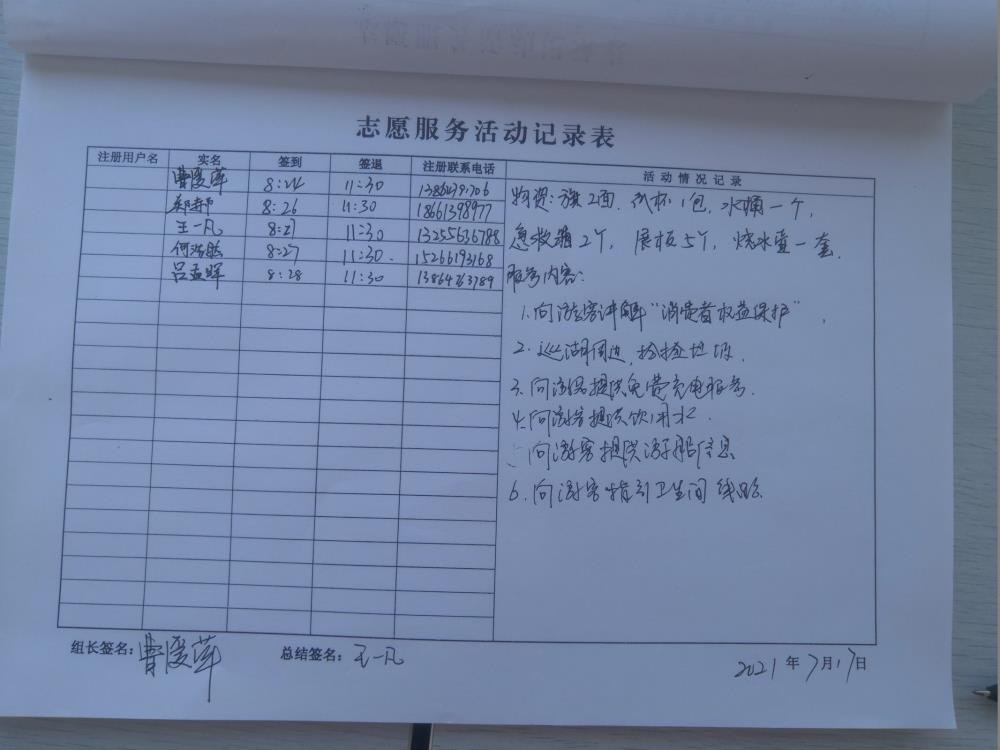 志愿服务活动记录表
注册用户名 实名 签到 签退 注册联系电话 活动情况记录
8:24 11:30
8:26 11:30 18661398977
王一凡 8:27 11:30 13255636788
8:27 11:30. 15266193168
吕孟晖 8:28 11:30 13864763789
物资:旗2面,纸杯1包,水桶一个,
急救箱2个,展板5个,烧水壶一套.
服务内容:
1.向游客讲解"消费者权益保护".
2.巡湖周边,捡捡垃圾.
3.向游客提供免费充电服务.
4.向游客提供饮用水.
向游客提供游船信息
6.向游客指引卫生间线路.
组长签名: 总结签名:王一凡
2021年7月17日